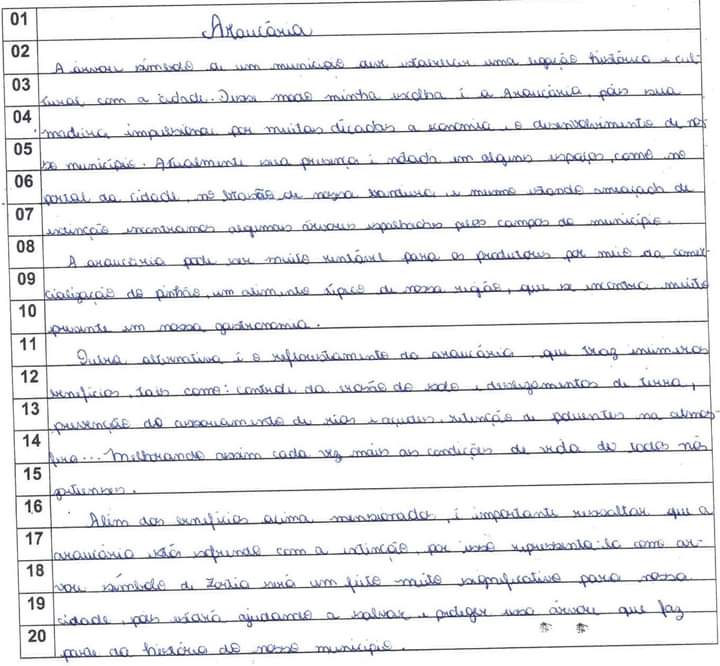 01 Araucária
02 A árvore símbolo de um município deve estabelecer uma ligação histórica e cul-
03 tural com a cidade. Desse modo minha escolha é a Araucária, pois sua
04 madeira impulsionou por muitas décadas a economia e o desenvolvimento de nos-
05 so município. Atualmente sua presença é notada em alguns espaços, como no
06 portal da cidade, no brasão, de nossa bandeira e mesmo estando ameaçada de
07 extinção encontramos algumas árvores espalhadas pelos campos do município.
08 A araucária pode ser muito rentável para os produtores por meio da comer-
09 cialização do pinhão, um alimento típico de nossa região, que se encontra muito
10 presente em nossa gastronomia.
11 Outra alternativa é o reflorestamento da araucária, que traz inumeros
12 benefícios, tais como: controle da erosão do solo e deslizamentos de terra,
13 prevenção do assoreamento de rios e açudes, retenção de poluentes na atmos-
14 fera... Melhorando assim cada vez mais as condições de vida de todos nós
15 zortienses.
16 Além dos benefícios acima mensionados, é importante ressaltar que a
17 araucária está sofrendo com a extinção, por isso representa-la como ár-
18 vore símbolo de Zortéa será um feito muito significativo para nossa
19 cidade, pois estará ajudando a salvar e proteger essa árvore que faz
20 parte da história do nosso município.